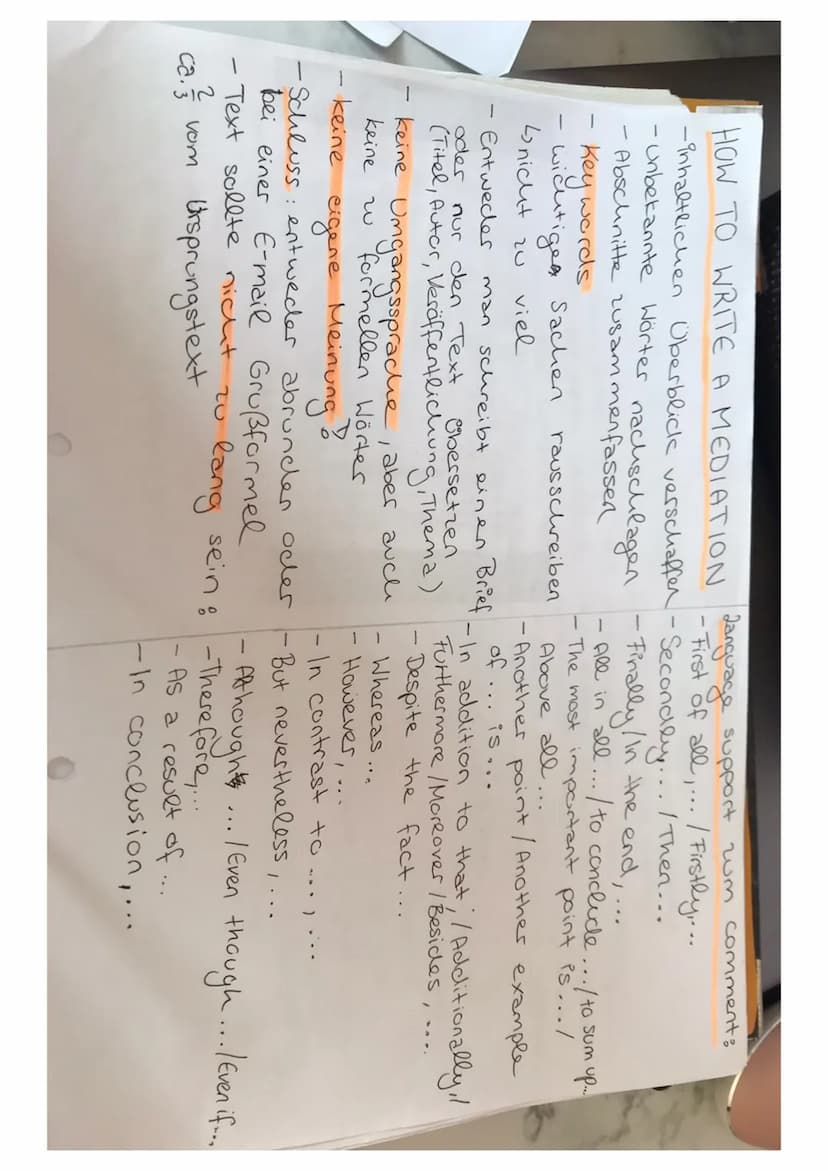 HOW TO WRITE A MEDIATION
- inhaltlichen Überblick verschaffen
- Unbekannte Wörter nachschlagen
- Abschnitte zusammenfassen
- Keywords
- wichtige Sachen rausschreiben
↳ nicht zu viel
- Entweder man schreibt einen Brief
oder nur den Text Übersetzen
(Titel, Autor, Veröffentlichung, Thema)
- keine Umgangssprache, aber auch
keine zu formellen Wörter
- keine eigene Meinung!
- Schluss: entweder abrunden oder
bei einer E-mail Grußformel
- Text sollte nicht zu lang sein:
ca. 2/3 vom Ursprungstext
language support zum comment:
- First of all,... / Firstly,...
- Secondly,... / Then...
- Finally / In the end,...
- All in all... / to conclude... / to sum up...
- The most important point is.... /
Above all...
- Another point / Another example
of ... is...
- In addition to that, / Additionally, /
Furthermore / Moreover / Besides, ....
- Despite the fact ....
- Whereas ...
- However, ...
- In contrast to ..., ...
- But nevertheless, ...
- Although ... / Even though ... / Even if...,
- Therefore,...
- As a result of ...
- In conclusion, ...